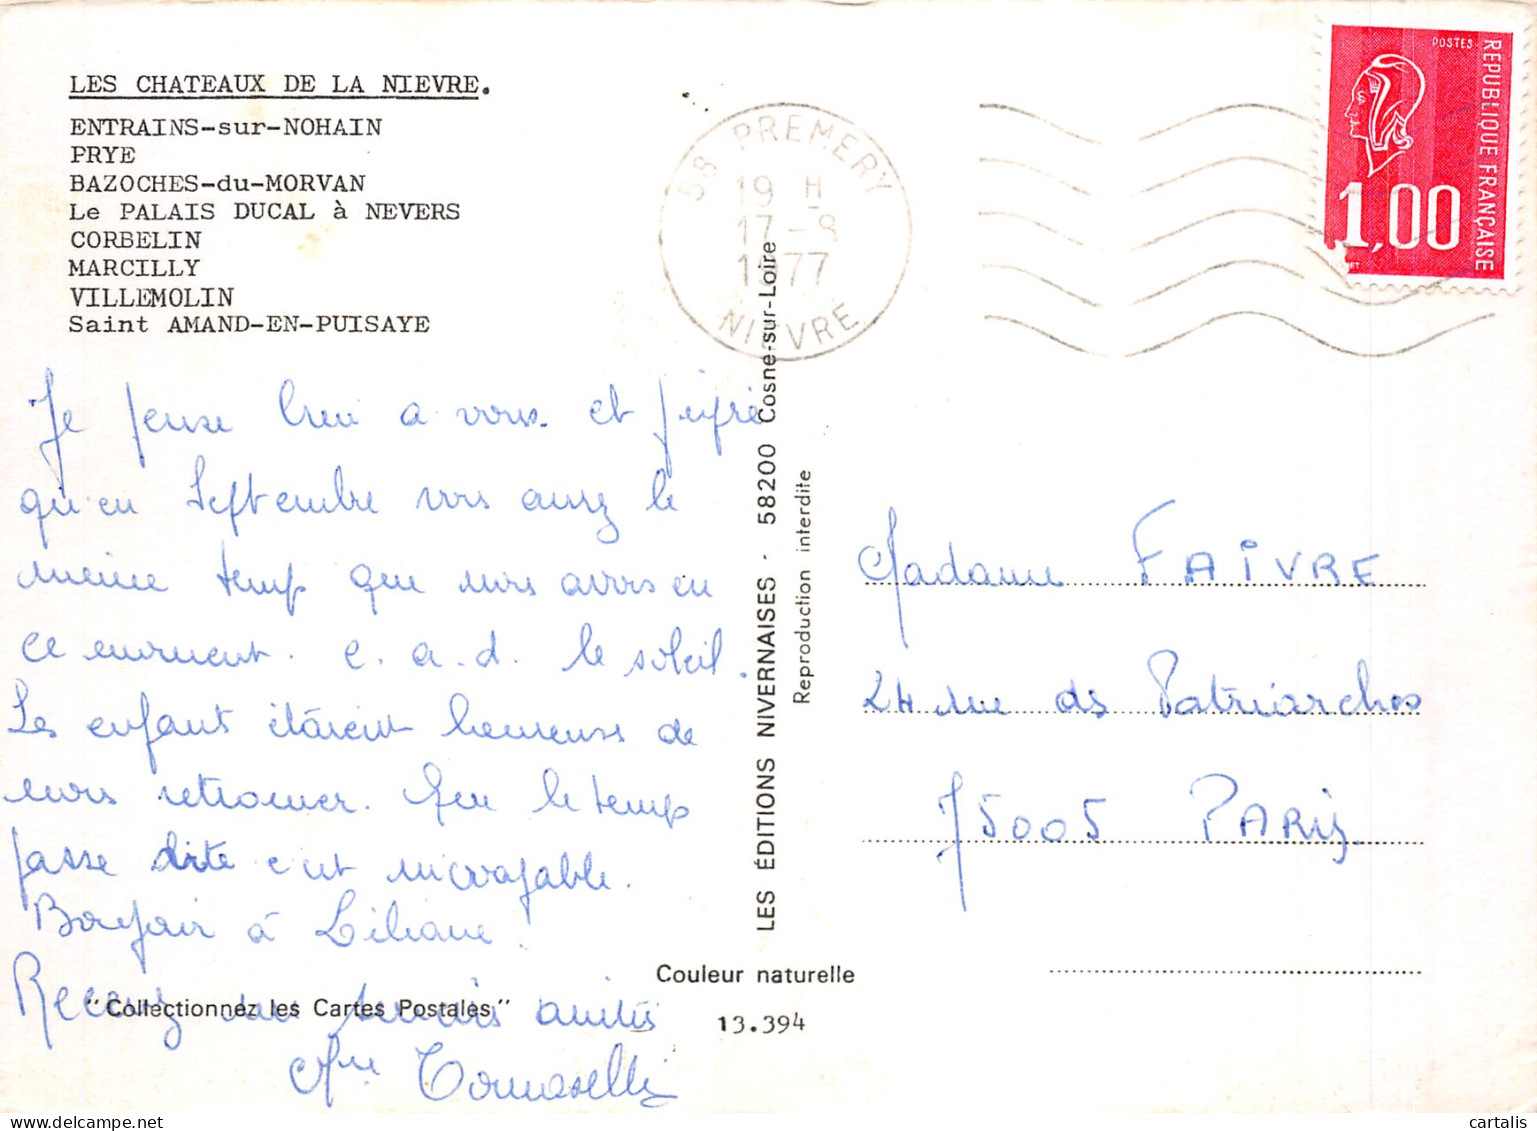 LES CHATEAUX DE LA NIEVRE.
ENTRAINS-sur-NOHAIN
PRYE
BAZOCHES-du-MORVAN
Le PALAIS DUCAL à NEVERS
CORBELIN
MARCILLY
VILLEMOLIN
Saint AMAND-EN-PUISAYE
58 PREMERY
19 H
17-8
1977
NIEVRE
POSTES
REPUBLIQUE FRANÇAISE
1,00
Je pense bien a vous. et j'espère
qu'en Septembre vous aurez le
même temps que nous avons en
ce moment. c. a. d. le soleil.
Les enfants étaient heureuses de
nous retrouver. Que le temps
passe vite c'est incroyable.
Bonjour à Liliane.
Recevez nos amitiés
Mme Tomaselli
LES ÉDITIONS NIVERNAISES . 58200 Cosne-sur-Loire
Reproduction interdite
Madame FAIVRE
24 rue des Patriarches
75005 PARIS
Couleur naturelle
"Collectionnez les Cartes Postales"
13.394
cartalis